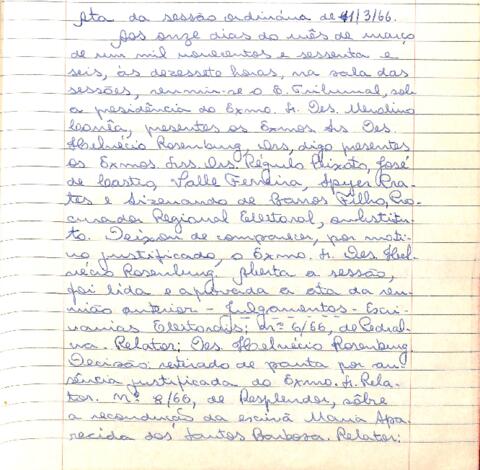 Ata da sessão ordinária de 11/3/66.
Aos onze dias do mês de março
de um mil novecentos e sessenta e
seis, às dezessete horas, na sala das
sessões, reuniu-se o E. Tribunal, sob
a presidência do Exmo. Sr. Des. Merolino
Corrêa, presentes os Exmos Srs Des.
Helvécio Rosenburg, Drs, digo presentes
os Exmos. Srs. Drs. Régulo Peixoto, José
de Castro, Valle Ferreira, Apyer Pra-
tes e Sizenando de Barros Filho, Pro-
curador Regional Eleitoral, substitu-
to. Deixou de comparecer, por moti-
vo justificado, o Exmo. Sr. Des. Hel-
vécio Rosenburg. Aberta a sessão,
foi lida e aprovada a ata da reu-
nião anterior - Julgamentos - Escri-
vanias Eleitorais; nº 6/66, de Pedral-
va. Relator; Des. Helvécio Rosenburg.
Decisão: retirado de pauta por au-
sência justificada do Exmo. Sr. Rela-
tor. Nº 8/66, de Resplendor, sôbre
a recondução da escrivã Maria Apa-
recida dos Santos Barbosa. Relator: